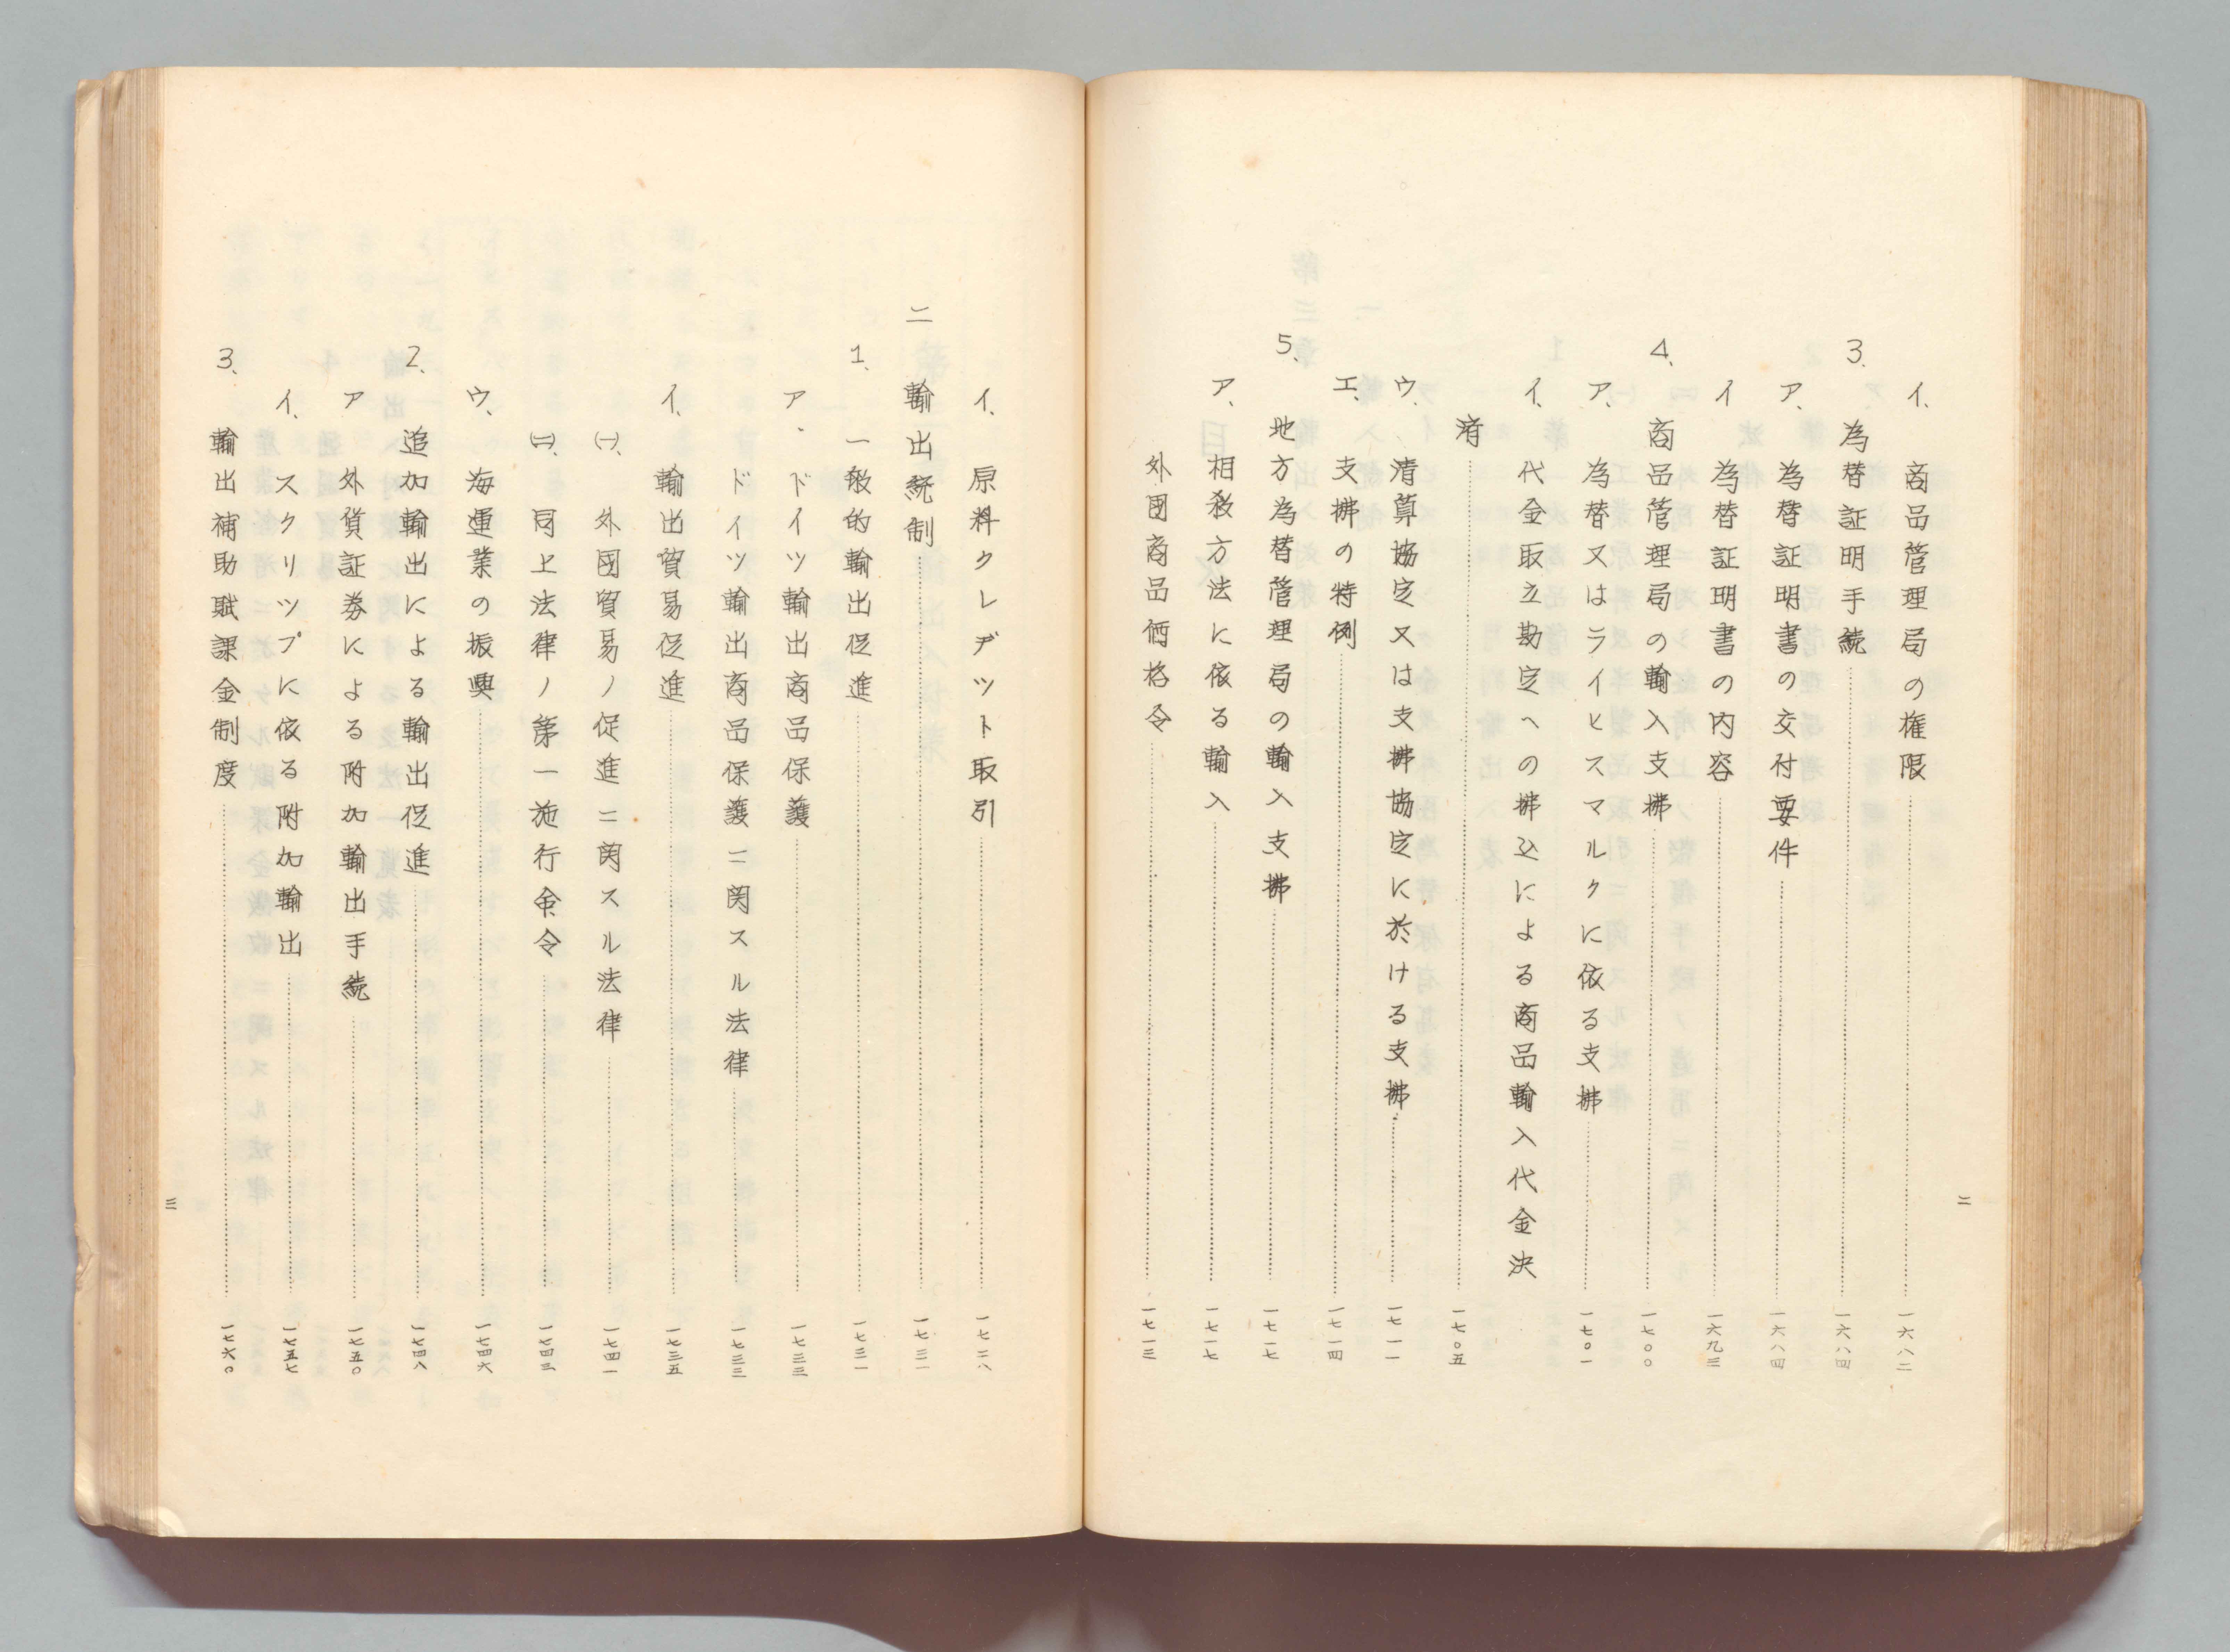 イ、商品管理局の権限……一六八二
3、為替証明手続……一六八四
ア、為替証明書の交付要件……一六八四
イ 為替証明書の内容……一六九三
4、商品管理局の輸入支拂……一七〇〇
ア、為替又はライヒスマルクに依る支拂……一七〇一
イ、代金取立勘定への拂込による商品輸入代金決
済……一七〇五
ウ、清算協定又は支拂協定に於ける支拂……一七一一
エ、支拂の特例……一七一四
5、地方為替管理局の輸入支拂……一七一七
ア、相殺方法に依る輸入……一七一七
外国商品価格令……一七一三
二
イ、原料クレヂット取引……一七二八
二 輸出統制……一七三一
1、一般的輸出促進……一七三一
ア、ドイツ輸出商品保護……一七三三
ドイツ輸出商品保護ニ関スル法律……一七三三
イ、輸出貿易促進……一七三五
(一)、外国貿易ノ促進ニ関スル法律……一七四一
(二)、同上法律ノ第一施行令令……一七四三
ウ、海運業の振興……一七四六
2、追加輸出による輸出促進……一七四八
ア 外貨証券による附加輸出手続……一七五〇
イ、スクリップに依る附加輸出……一七五七
3、輸出補助賦課金制度……一七六〇
三